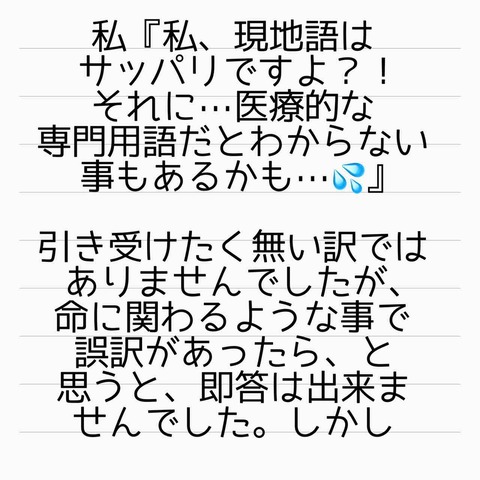 私『私、現地語は
サッパリですよ？！
それに…医療的な
専門用語だとわからない
事もあるかも…💦』
引き受けたく無い訳では
ありませんでしたが、
命に関わるような事で
誤訳があったら、と
思うと、即答は出来ま
せんでした。しかし